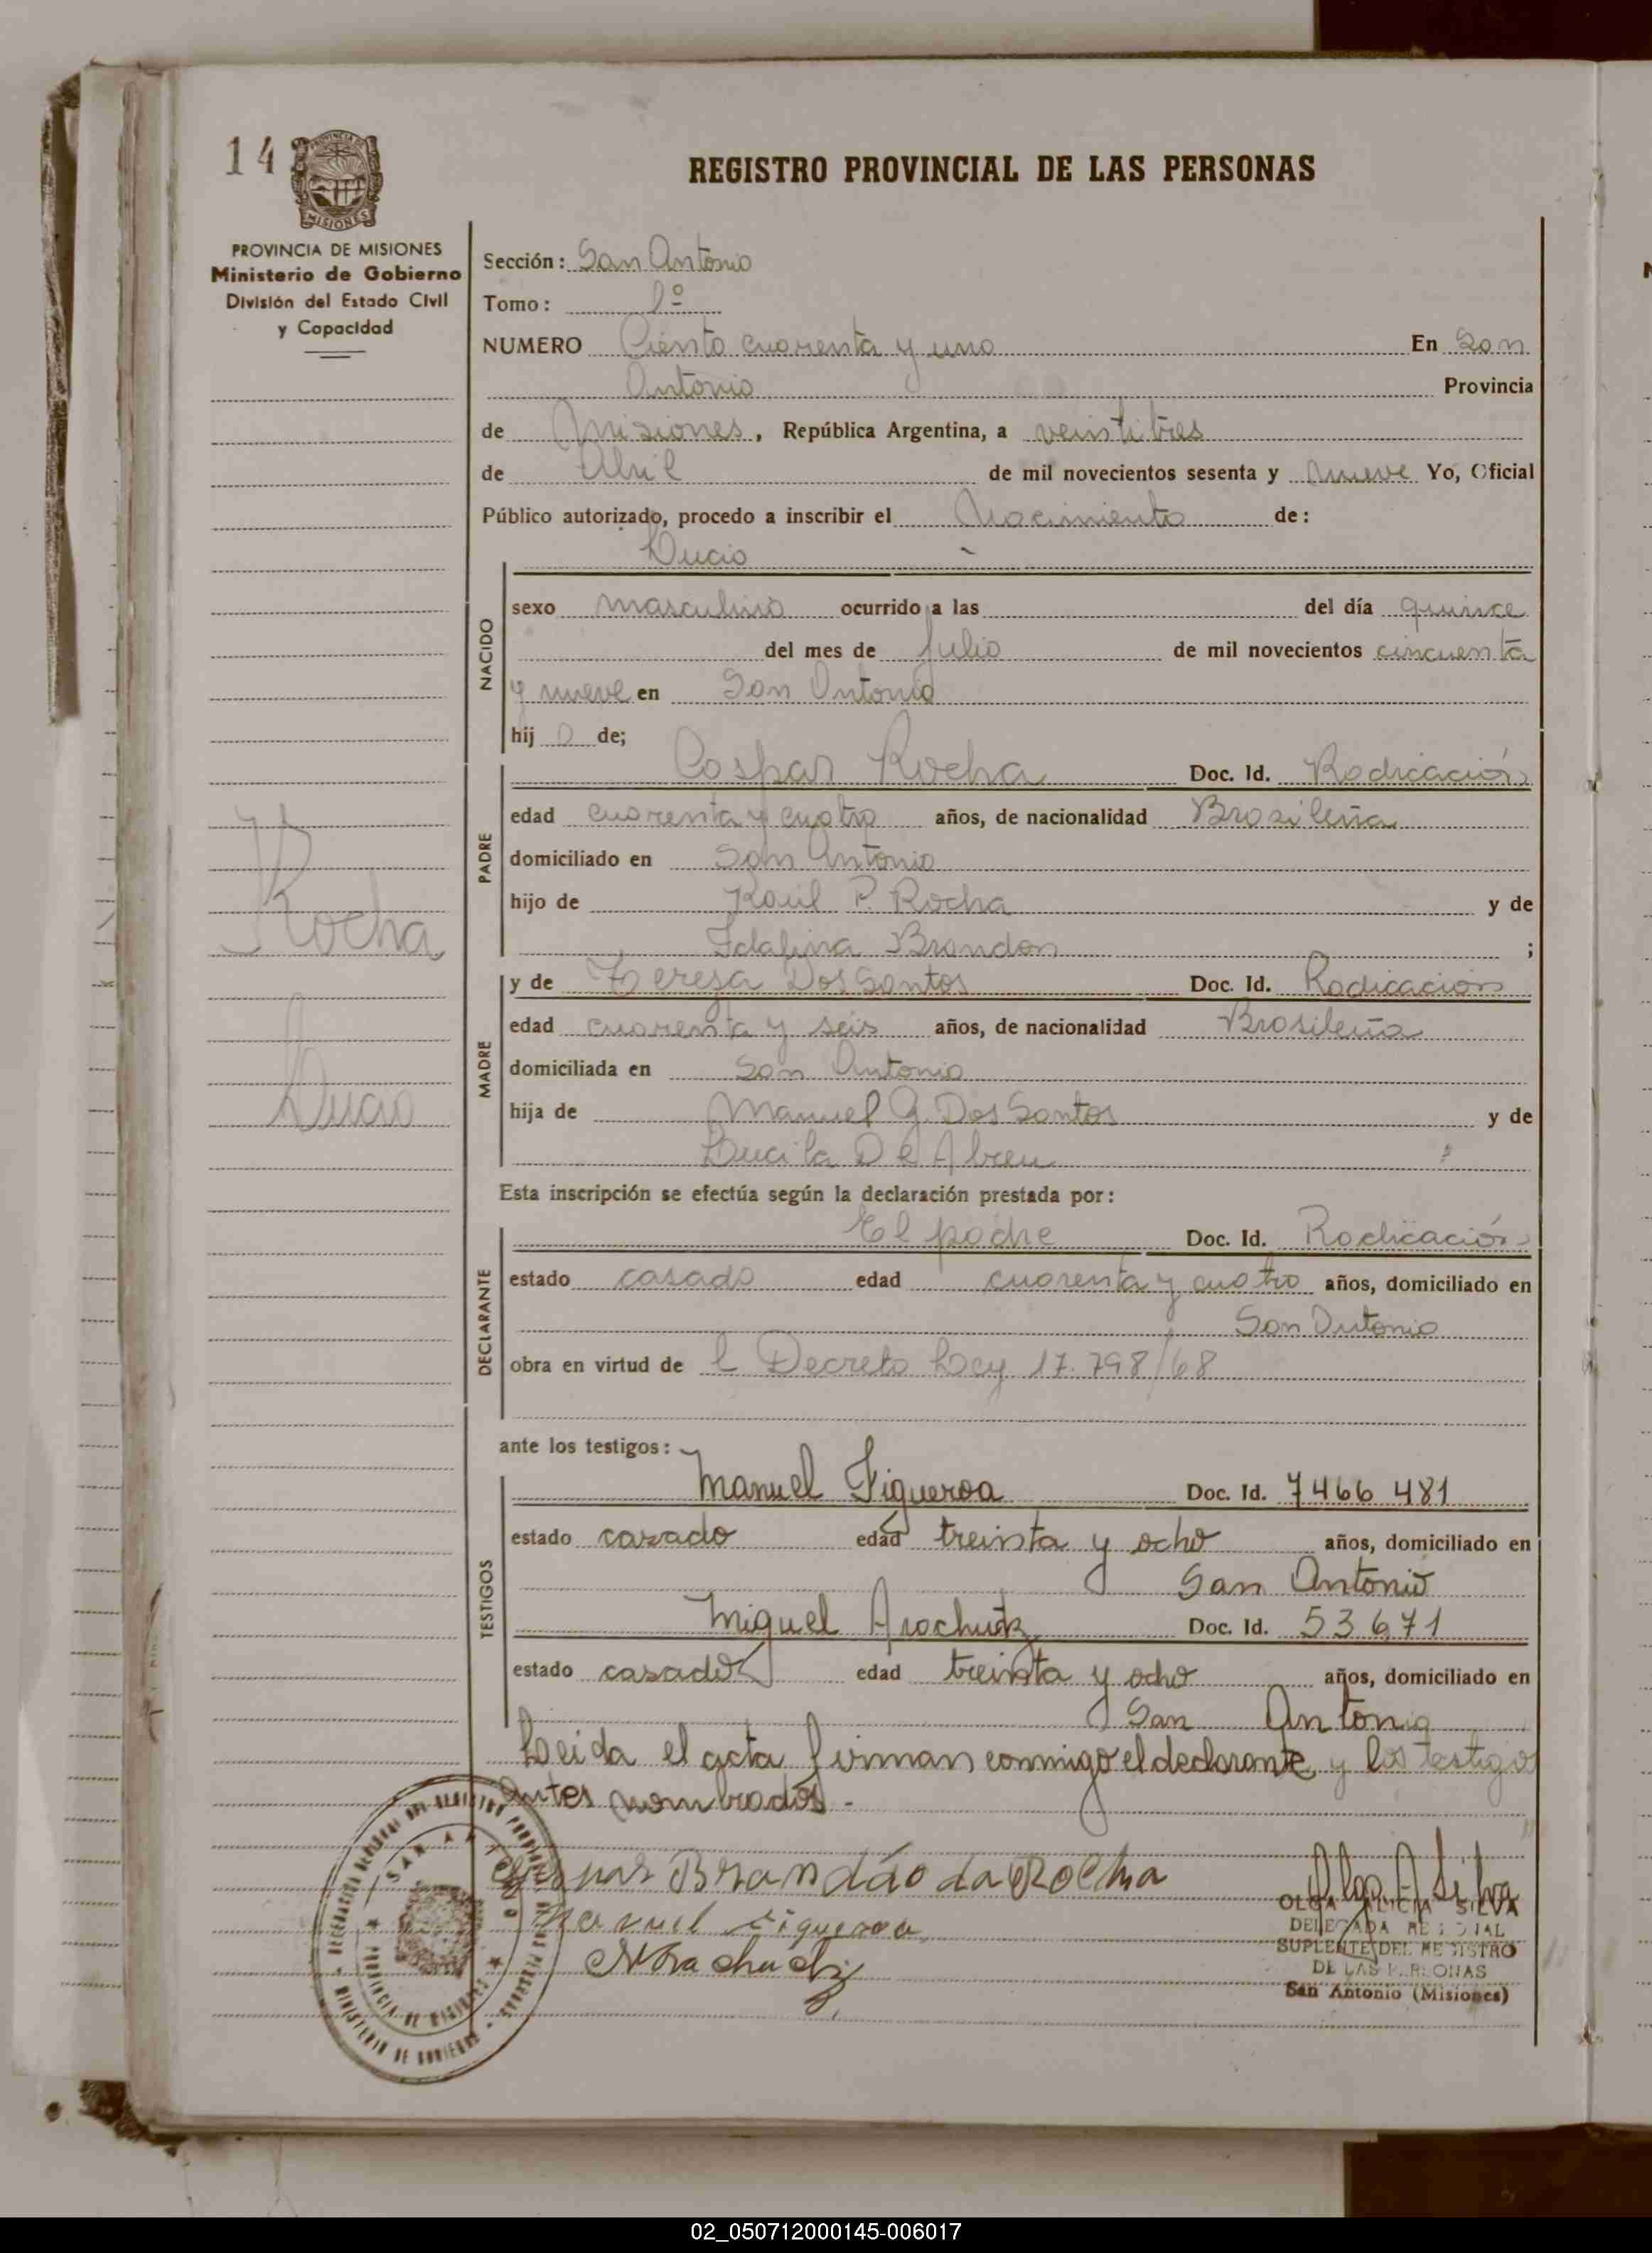 14
PROVINCIA DE MISIONES
Ministerio de Gobierno
División del Estado Civil
y Capacidad
REGISTRO PROVINCIAL DE LAS PERSONAS
Sección: San Antonio
Tomo: 1º
NUMERO Ciento cuarenta y uno En San
Antonio Provincia
de Misiones, República Argentina, a veintitres
de Abril de mil novecientos sesenta y nueve Yo, Oficial
Público autorizado, procedo a inscribir el Nacimiento de:
Lucio
NACIDO
sexo masculino ocurrido a las del día quince
del mes de Julio de mil novecientos cincuenta
y nueve en San Antonio
hij o de;
PADRE
Gaspar Rocha Doc. Id. Radicación
edad cuarenta y cuatro años, de nacionalidad Brasileña
domiciliado en San Antonio
hijo de Raul P. Rocha y de
Brandon ;
Rocha
Lucio
MADRE
y de Teresa Dos Santos Doc. Id. Radicación
edad cuarenta y seis años, de nacionalidad Brasileña
domiciliada en San Antonio
hija de Manuel G. Dos Santos y de
Lucila De Abreu
Esta inscripción se efectúa según la declaración prestada por:
DECLARANTE
El padre Doc. Id. Radicación
estado casado edad cuarenta y cuatro años, domiciliado en
San Antonio
obra en virtud de l Decreto Ley 17.798/68
ante los testigos:
TESTIGOS
Manuel Figueroa Doc. Id. 7466 481
estado casado edad treinta y ocho años, domiciliado en
San Antonio
Miguel Doc. Id. 53671
estado casado edad treinta y ocho años, domiciliado en
San Antonio
Leida el acta firman conmigo el declarante y los testigos
antes nombrados.-
Brandáo da Rocha
Manuel Figueroa
OLGA ALICIA SILVA
DELEGADA REGIONAL
SUPLENTE DEL REGISTRO
DE LAS PERSONAS
San Antonio (Misiones)
02_050712000145-006017